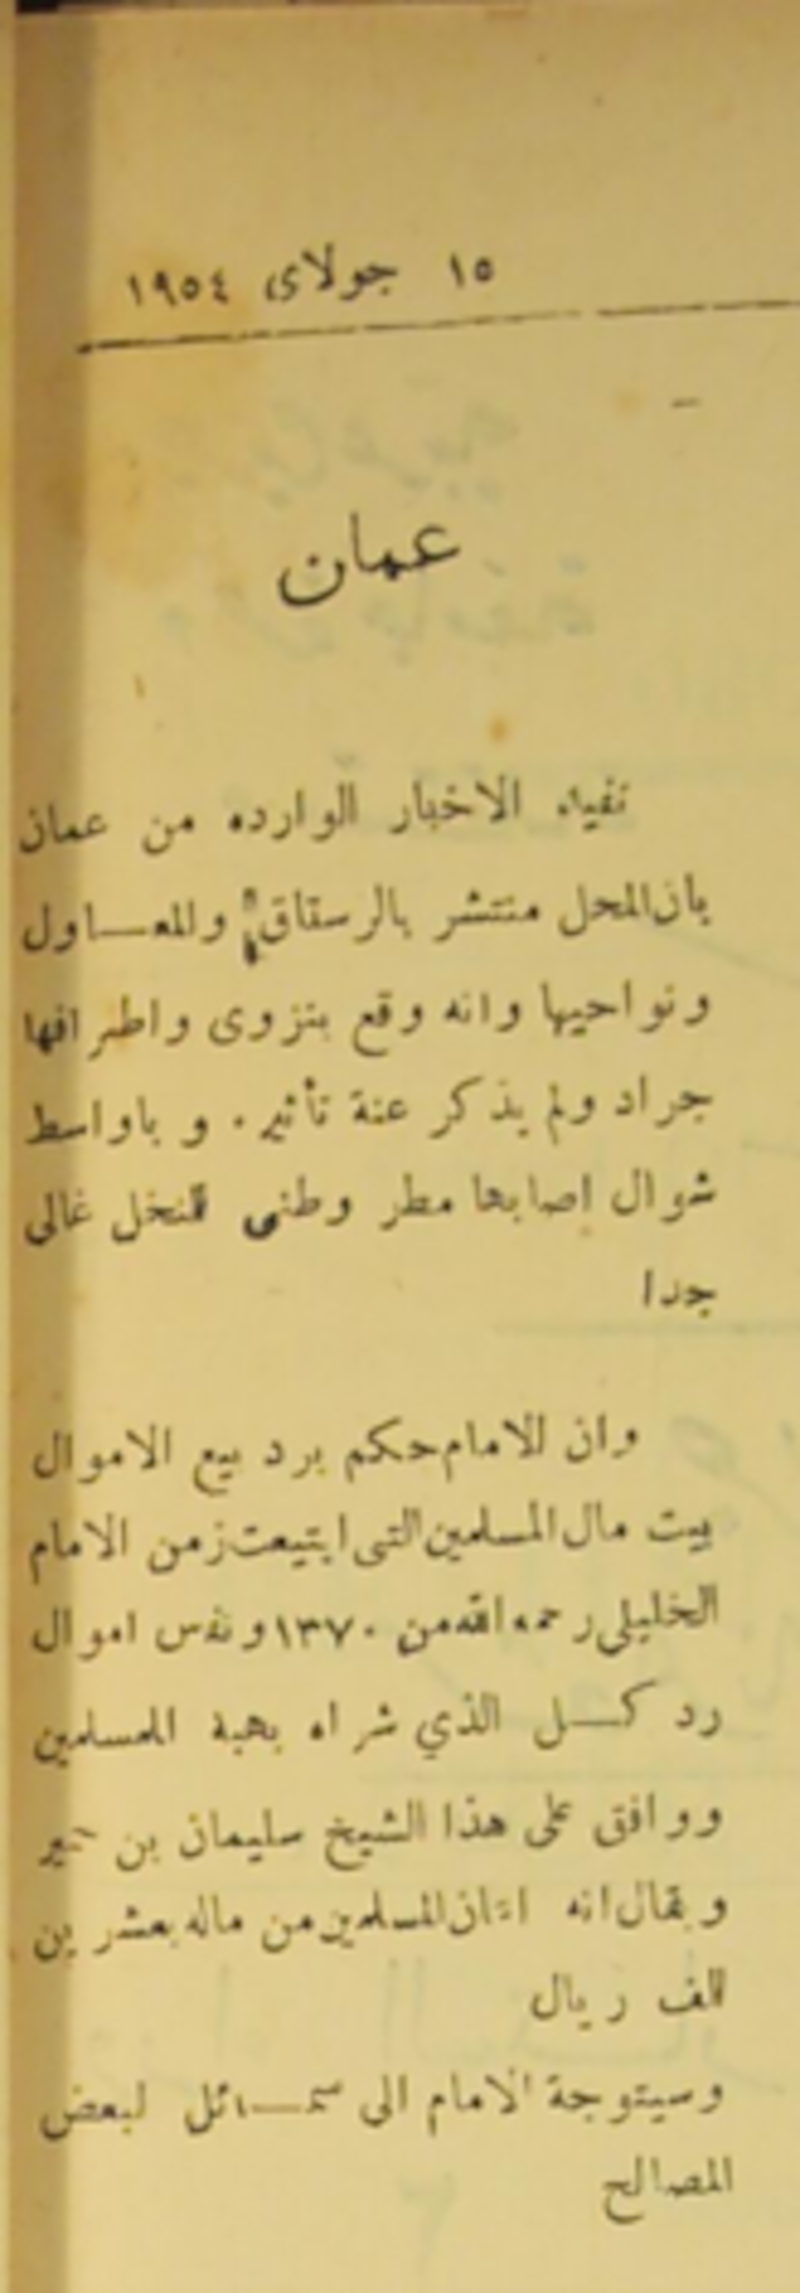 ١٥ جولاى ١٩٥٤
عمان
تفياد الاخبار الوارده من عمان
بان المحل منتشر بالرستاق والمعاول
ونواحيها وانه وقع بنزوى واطرافها
جراد ولم يذكر عنة تأثير . و باواسط
شوال اصابها مطر وطنى النخل غالى
جدا
وان الامام حكم برد بيع الاموال
بيت مال المسلمين التى ابتيعت زمن الامام
الخليلى رحمه الله من ١٣٧٠ ونفس اموال
رد كل الذي شراه بهبة المسلمين
ووافق على هذا الشيخ سليمان بن حمير
ويقال انه المسلمين من ماله بعشرين
الف ريال
وسيتوجة الامام الى سمائل لبعض
المصالح